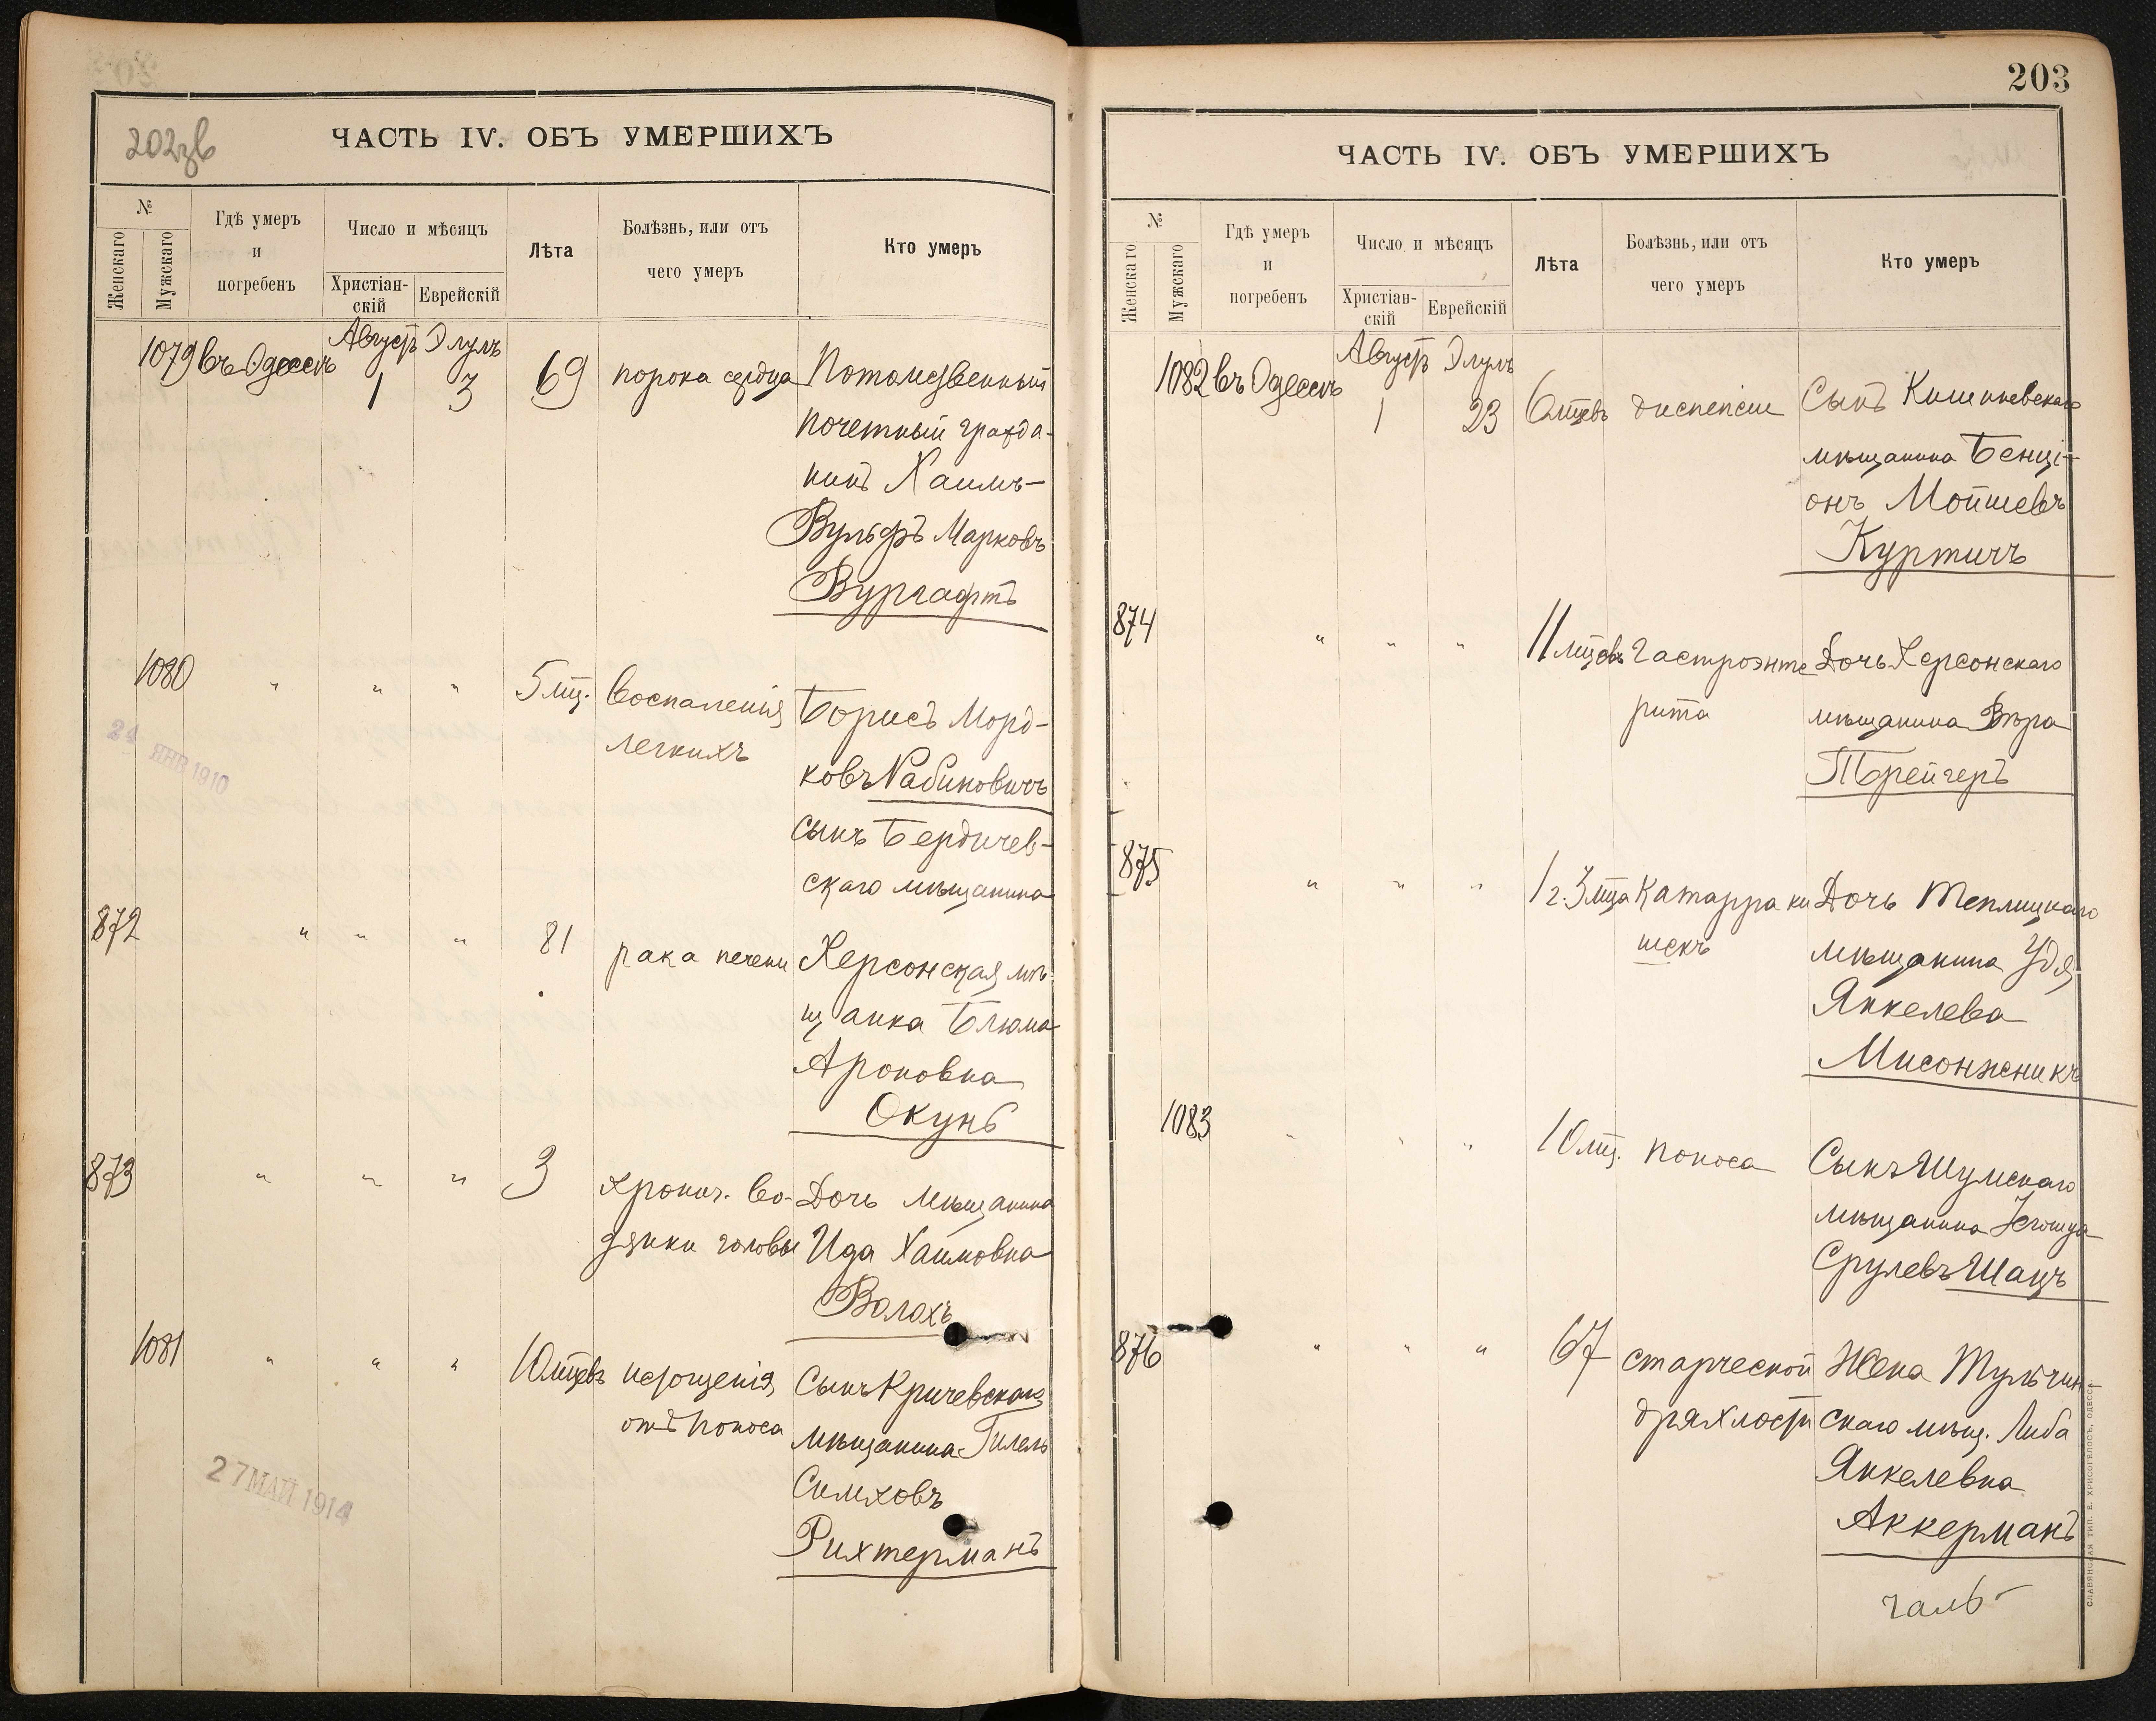 202зв
ЧАСТЬ IV. ОБЪ УМЕРШИХЪ
№
Женскаго
Мужскаго
Гдѣ умеръ
и
погребенъ
Число и мѣсяцъ
Христіан-
скій
Еврейскій
Лѣта
Болѣзнь, или отъ
чего умеръ
Кто умеръ
Августъ Элулъ
1079 въ Одессѣ 1 3 69 порока сердца Потомственный
почетный гражда-
нинъ Хаимъ-
Вульфъ Марковъ
Вургафтъ
1080 " " " 5 мц. воспаленія Борисъ Морд-
легкихъ ковъ Рабиновичъ
сынъ Бердичев-
скаго мѣщанина
24 ЯНВ 1910
872 " " " 81 рака печени Херсонская мѣ-
щанка Блюма
Ароновна
Окунь
873 " " " 3 хронич. во- Дочь мѣщанина
дянки головы Ида Хаимовна
Волохъ
1081 " " " 10 мцевъ истощенія Сынъ Кричевскаго
отъ поноса мѣщанина Гилель
Симховъ
Рихтерманъ
27 МАЙ 1914
203
ЧАСТЬ IV. ОБЪ УМЕРШИХЪ
№
Женскаго
Мужскаго
Гдѣ умеръ
и
погребенъ
Число и мѣсяцъ
Христіан-
скій
Еврейскій
Лѣта
Болѣзнь, или отъ
чего умеръ
Кто умеръ
Августъ Элулъ
1082 въ Одессѣ 1 23 6 мцевъ диспепсіи Сынъ Кишиневскаго
мѣщанина Бенці-
онъ Мойшевъ
Куртичъ
874 " " " 11 мцевъ гастроэнте Дочь Херсонскаго
рита мѣщанина Вѣра
Трейгеръ
875 " " " 1 г. 3 мца Катарра ки Дочь Теплицкаго
шекъ мѣщанина Удя
Янкелева
Мисонжникъ
1083 " " " 10 мц. поноса Сынъ Шумскаго
мѣщанина Іегошуа
Срулевъ Шацъ
876 " " " 67 старческой Жена Тульчин-
дряхлости скаго мѣщ. Либа
Янкелевна
Аккерманъ
СЛАВЯНСКАЯ ТИП. Е. ХРИСОГЕЛОСЪ, ОДЕССА